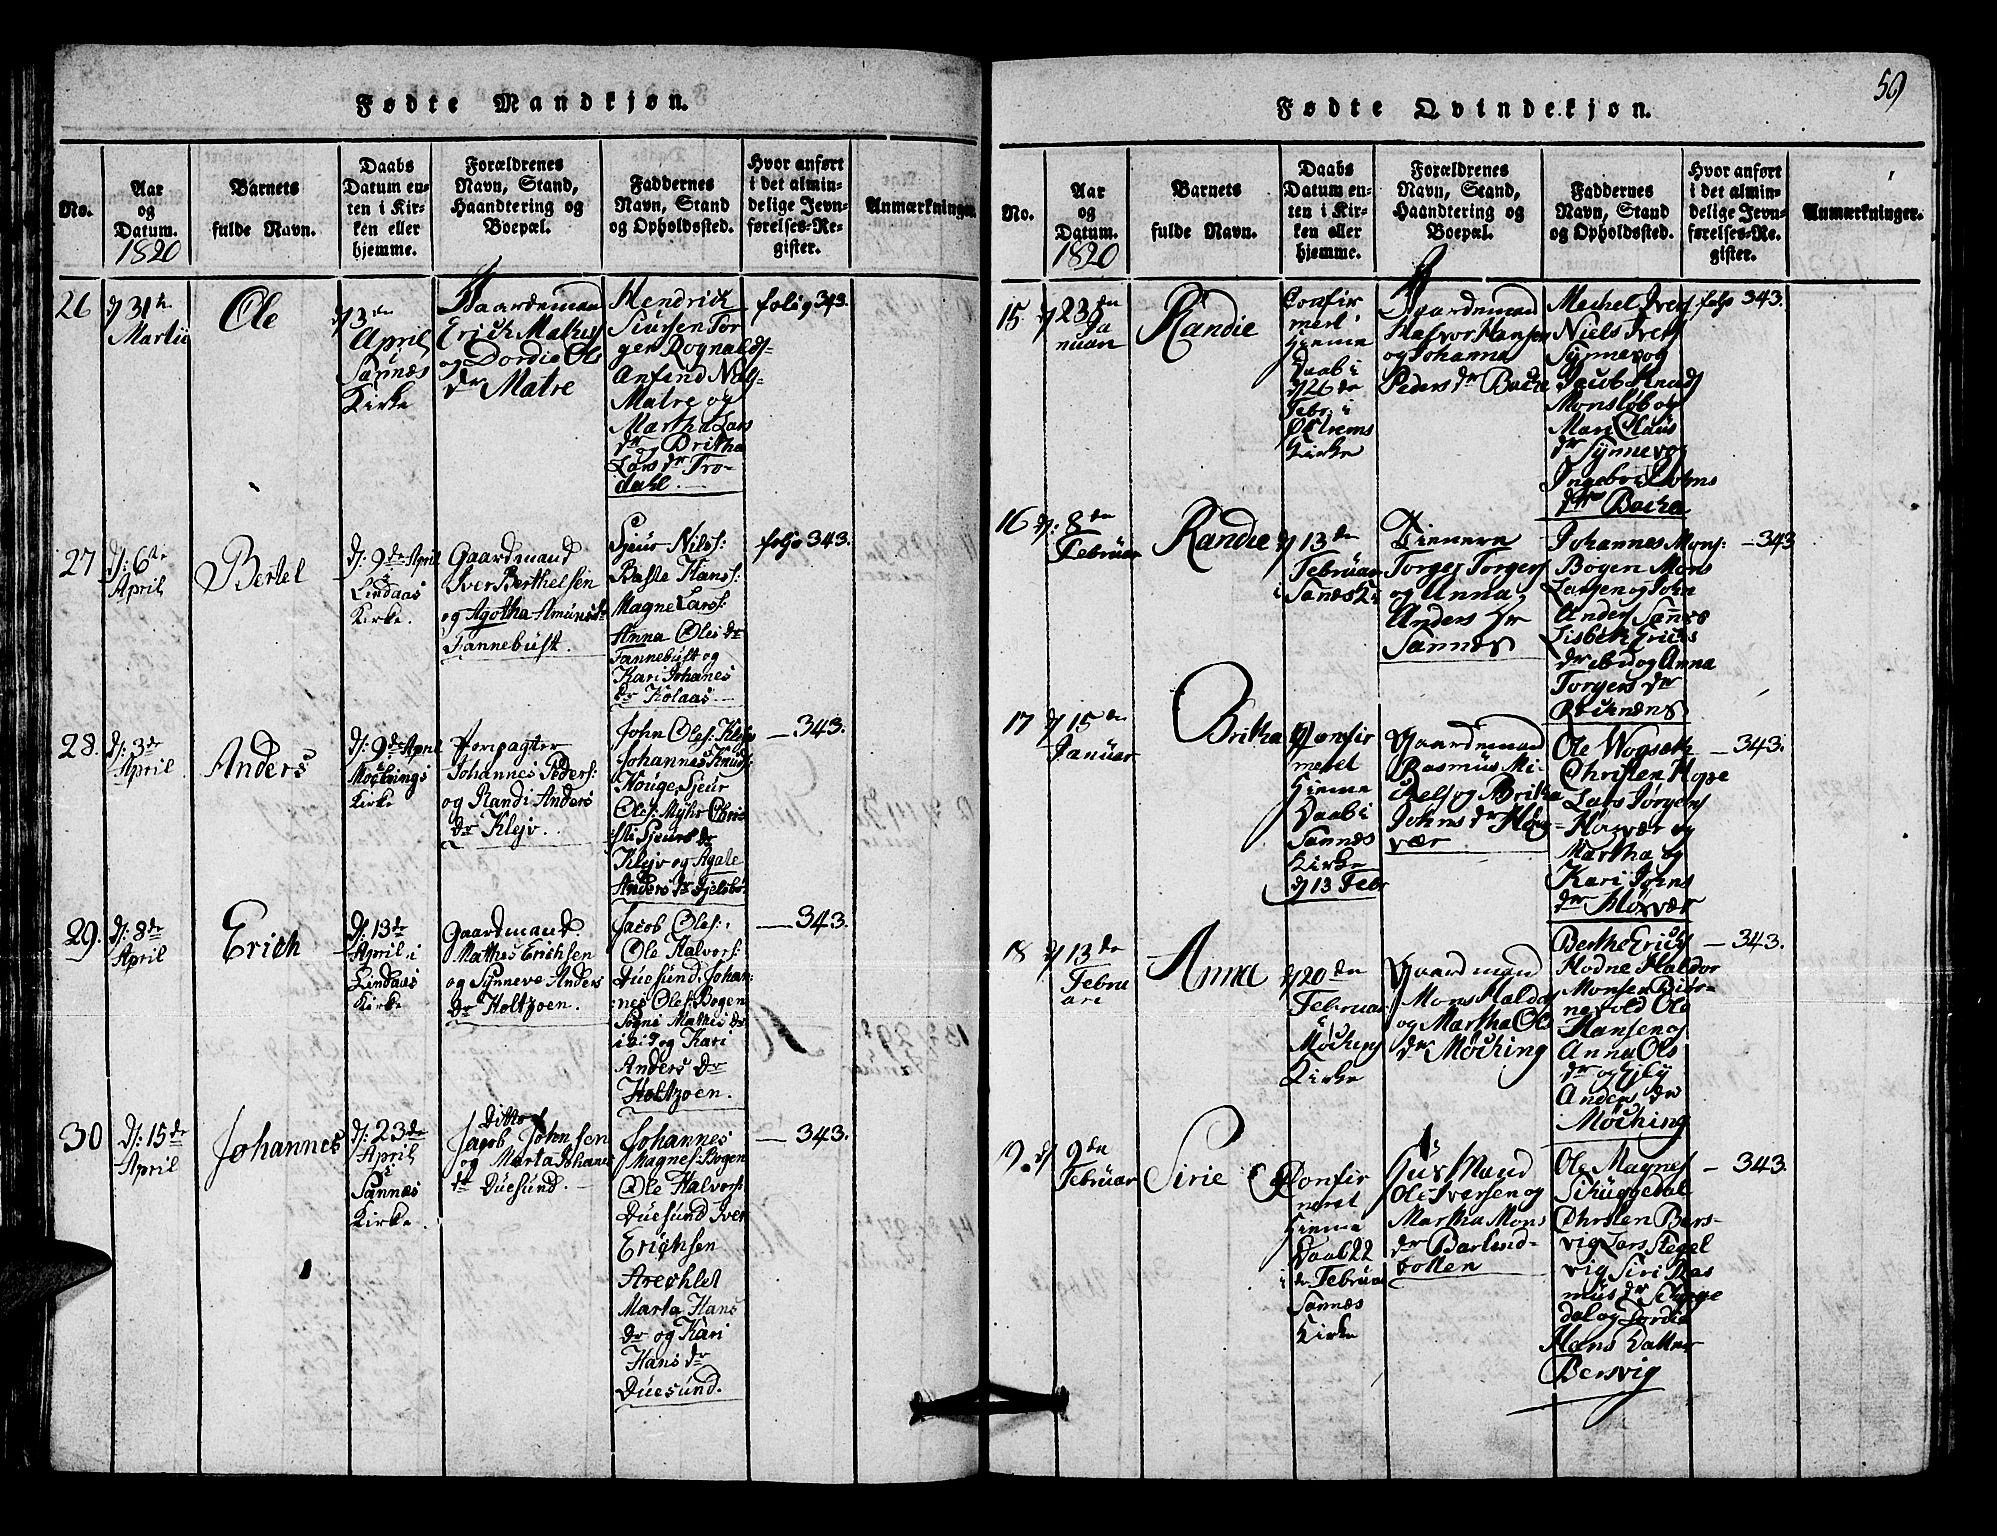 Fødte Mandkjøn.
No.
Aar
og
Datum.
1820
Barnets
fulde Navn.
Daabs
Datum en-
ten i Kir-
ken eller
hjemme.
Forældrenes
Navn, Stand,
Haandtering og
Boepæl.
Faddernes
Navn, Stand
og Opholdssted.
Hvor anført
i det almin-
delige Jevn-
førelses-Re-
gister.
Anmærkninger.
26
d 31te
Martii
Ole
d 3den
April
Sannæs
Kirke
Gaardemand
Erich
og Dordie Ols
dr Matre
Hendrich
Siursen Tor
ger Rognalds-
Anfind
Matre og
Martha Lars
dr og Britha
Lars dr Tro-
dahl.
folio 343.
27
d: 6te
April
Bertel
d: 9de April
i Lindaas
Kirke.
Gaardmand
Iver Berthelsen
og Agotha
Fannebust.
Sjeur Nilss:
Baste Hanss:
Magne Larss:
Anna Oles dr
Fannebust og
Kari Johanes
dr Kolaas
folio 343.
28.
d: 3de
April
Anders
d: 9de April
i
Kirke
Forpagter
Johannes Peders:
og Randi Anders
dr Klejv.
John Oles: Klejv
Johannes Knuds:
Kouge, Sjeur
Oles: Myhr Chris
sti Sjeurs dr
Klejv og Agate
Anders dr
343.
29.
d: 8de
April
Erich
d: 13de
April i
Lindaas
Kirke
Gaardmand
Mathes Erichsen
og Synneve Anders
dr Holtzoen.
Jacob Oles:
Ole Halvors:
Duesund, Johan:
nes Oles: Bogen
Mathis dr
og Kari
Anders dr
Holtzoen.
343.
30
d: 15de
April
Johannes
d: 23de
April
i
Sannæs
Kirke.
Ditto
Jacob Johnsen
og Marta Johanes
dr Duesund.
Johannes
Magnes: Bogen
Ole Halvors:
Duesund Iver
Erichsen
Marta Hans
dr og Kari
Hans dr
Duesund.
343.
59
Fødte Qvindekjøn.
No.
Aar
og
Datum.
1820
Barnets
fulde Navn.
Daabs
Datum en-
ten i Kir-
ken eller
hjemme.
Forældrenes
Navn, Stand,
Haandtering og
Boepæl.
Faddernes
Navn, Stand
og Opholdssted.
Hvor anført
i det almin-
delige Jevn-
førelses-Re-
gister.
Anmærkninger.
15
d 23de
Ja
nuari
Randie
Confir
mert
hiemme
Daab i
d 26de
Febr. i
Kirke
Gaardemand
Halvor Hansen
og Johanna
Peders dr Bache
Mechel Ivers
Niels Ivers
Synnevog
Jacob Knuds
Monsløb og
Mari Claus
dr Synnevog
Ingebor
dr Bache
folio 343.
16
d: 8de
Februar
Randie
d 13de
Februar
i Sanæs Ki
Tienere
Torger Torgers
og Anna
Anders
Sannæs
Johannes Mons:
Bogen Mons
Larsen og John
Anders Sannæs
Lisbeth Erichs
dr ibid og Anna
Torgers dr
343
17
d 15de
Januar
Britha
Confir
meret
hiemme
Daab i
Sannæs
Kirke
d 13 Febr
Gaardemand
Rasmus Mi
chels og Britha
Johns dr
vær
Ole Wogseth
Christen Hope
Lars Jørgens
og
Martha og
Kari Johns
dr
343.
18
d 13de
Febru
ari
Anna
d 20de
Februar
i
Möching
Kirke
Gaardmand
Mons Haldor
og Martha Ols
dr Möching
Bertha Erichs
Hodne Haldor
Monsen
Ole
Hansen og
Anna Ols
dr og
Anders dr
Möching
343.
19.
d 9de
Februar
Sirie
Confir
meret
hiemme
Daab 22
de Februar
i
Sannæs
Kirke
Husmand
Ole Iversen og
Martha Mons
dr Barlind-
botten
Ole Magnes
Skuggedal
Christen Bers-
vig Lars Stegel
vig Siri Ras
mus dr Skugge
dal og Dordi
Hans Datter
Bersvig
343.